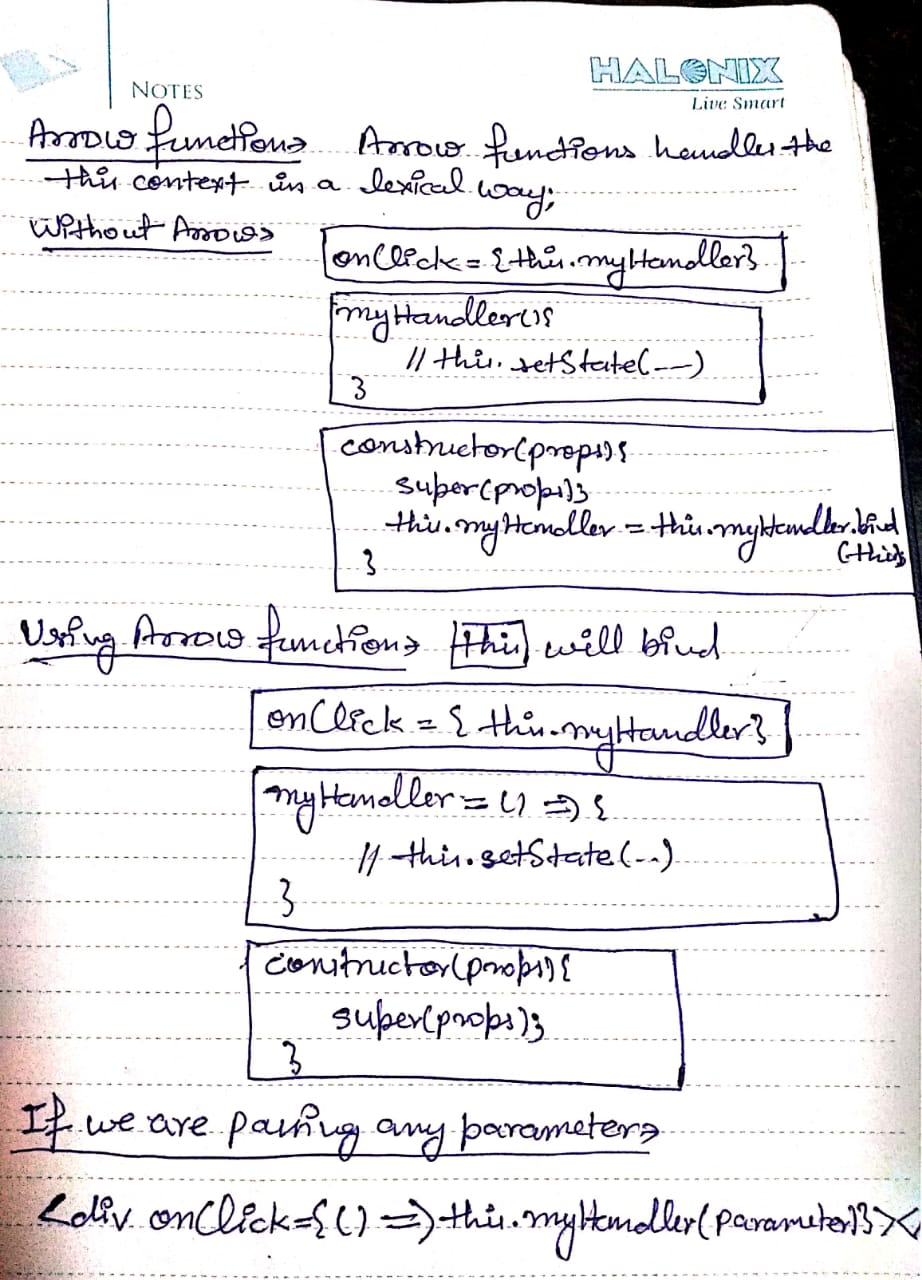 NOTES
HALONIX
Live Smart
Arrow functions Arrow functions handles the
this context in a lexical way;
Without Arrows
onClick = {this.myHandler}
myHandler(){
// this.setState(---)
}
constructor(props){
super(props);
this.myHandler = this.myHandler.bind
(this)
}
Using Arrow functions this will bind
onClick = { this.myHandler}
myHandler = () => {
// this.setState(---)
}
constructor(props){
super(props);
}
If we are passing any parameters
<div onClick={() => this.myHandler(parameter)}><